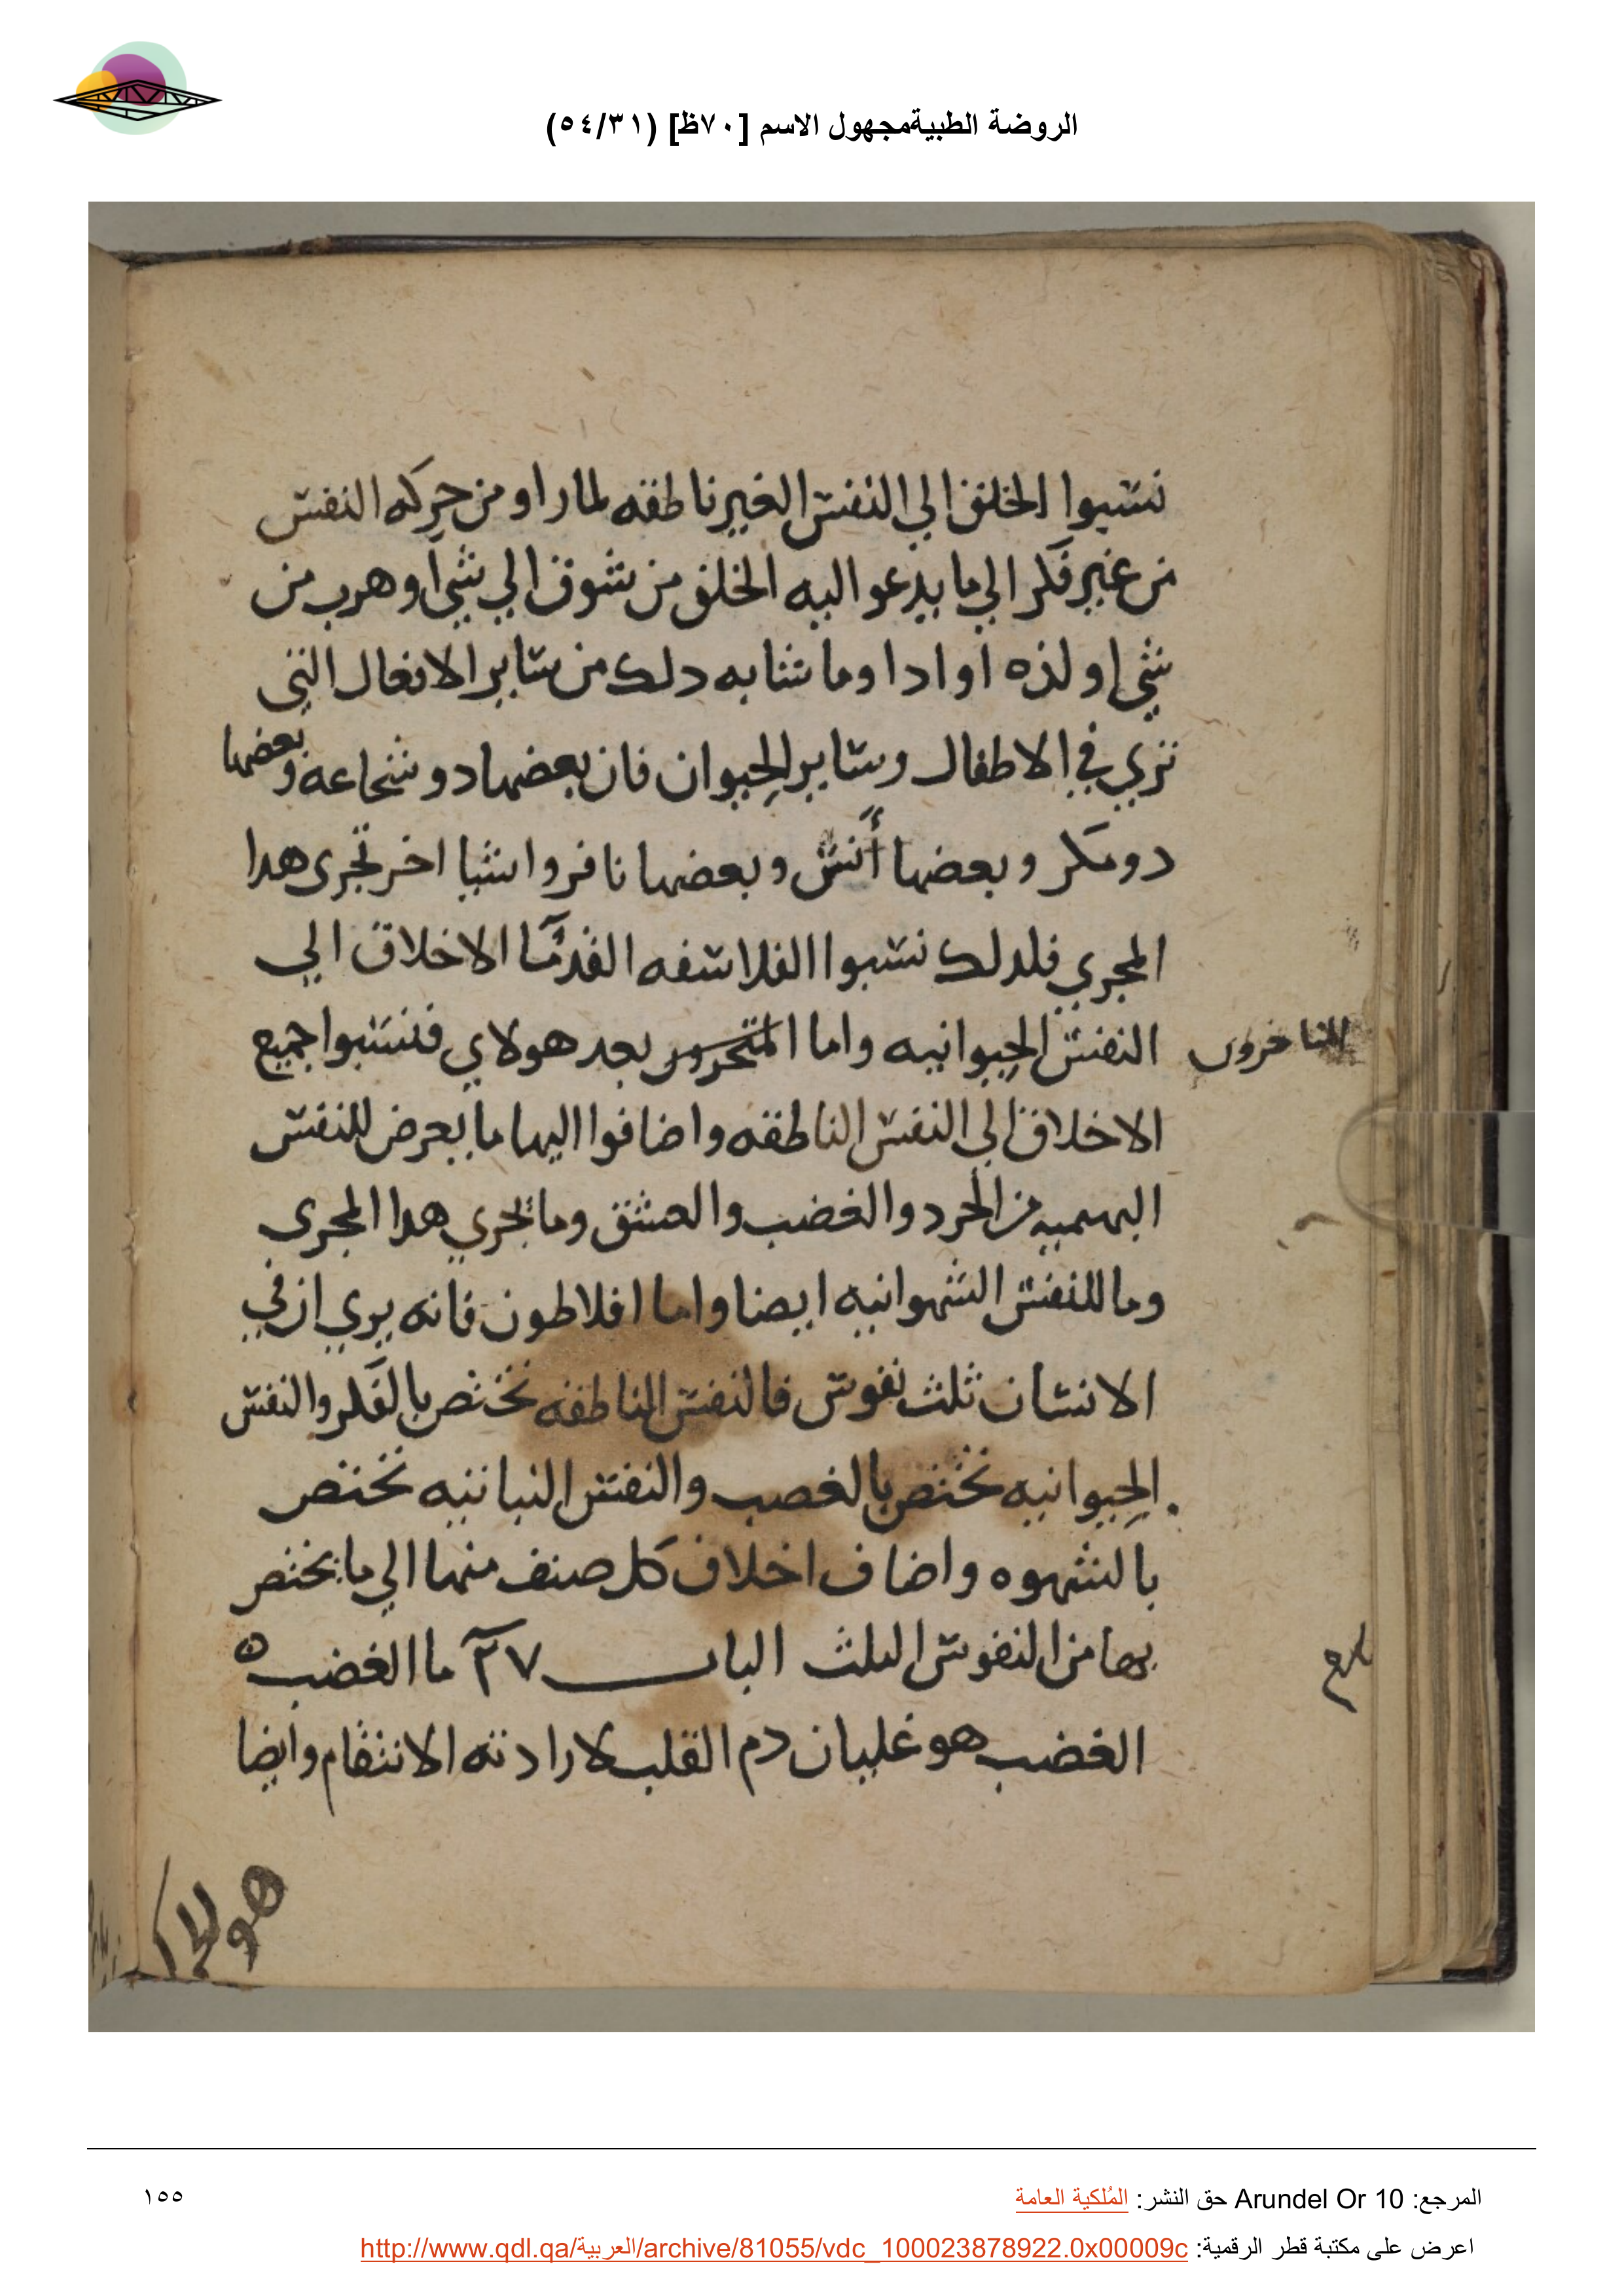 الروضة الطبيةمجهول الاسم [٧٠ظ] (٥٤/٣١)
نسبوا الخلق الي النفس الغير ناطقه لما راو من حركه النفس
من غير فكر الي ما يدعوا اليه الخلق من شوق الي شي او هرب من
شي او لذه او ادا وما شابه دلك من ساير الافعال التي
تري في الاطفال وساير الحيوان فان بعضها دو شجاعه وبعضها
دو مكر وبعضها أنس وبعضها نافر واشيا اخر تجرى هدا
المجري فلدلك نسبوا الفلاسفه القدما الاخلاق الي
النفس الحيوانيه واما المتحرون بعد هولاي فنسبوا جميع
المتاخرون
الاخلاق الي النفس الناطقه واضافوا اليها ما يعرض للنفس
البهيميه من الحرد والغضب والعشق وما يجري هدا المجرى
وما للنفس الشهوانيه ايضا واما افلاطون فانه يري ان في
الانسان ثلث نفوس فالنفس الناطقه تختص بالفكر والنفس
الحيوانيه تختص بالغصب والنفس النباتيه تختص
بالشهوه واضاف اخلاق كل صنف منها الي ما يختص
بها من النفوس الثلث الباب ٢٧ ما الغضب ٥
الغضب هو غليان دم القلب لارادته الانتقام وايضا
هو
١٥٥
المرجع: Arundel Or 10 حق النشر: المُلكية العامة
اعرض على مكتبة قطر الرقمية: http://www.qdl.qa/العربية/archive/81055/vdc_100023878922.0x00009c